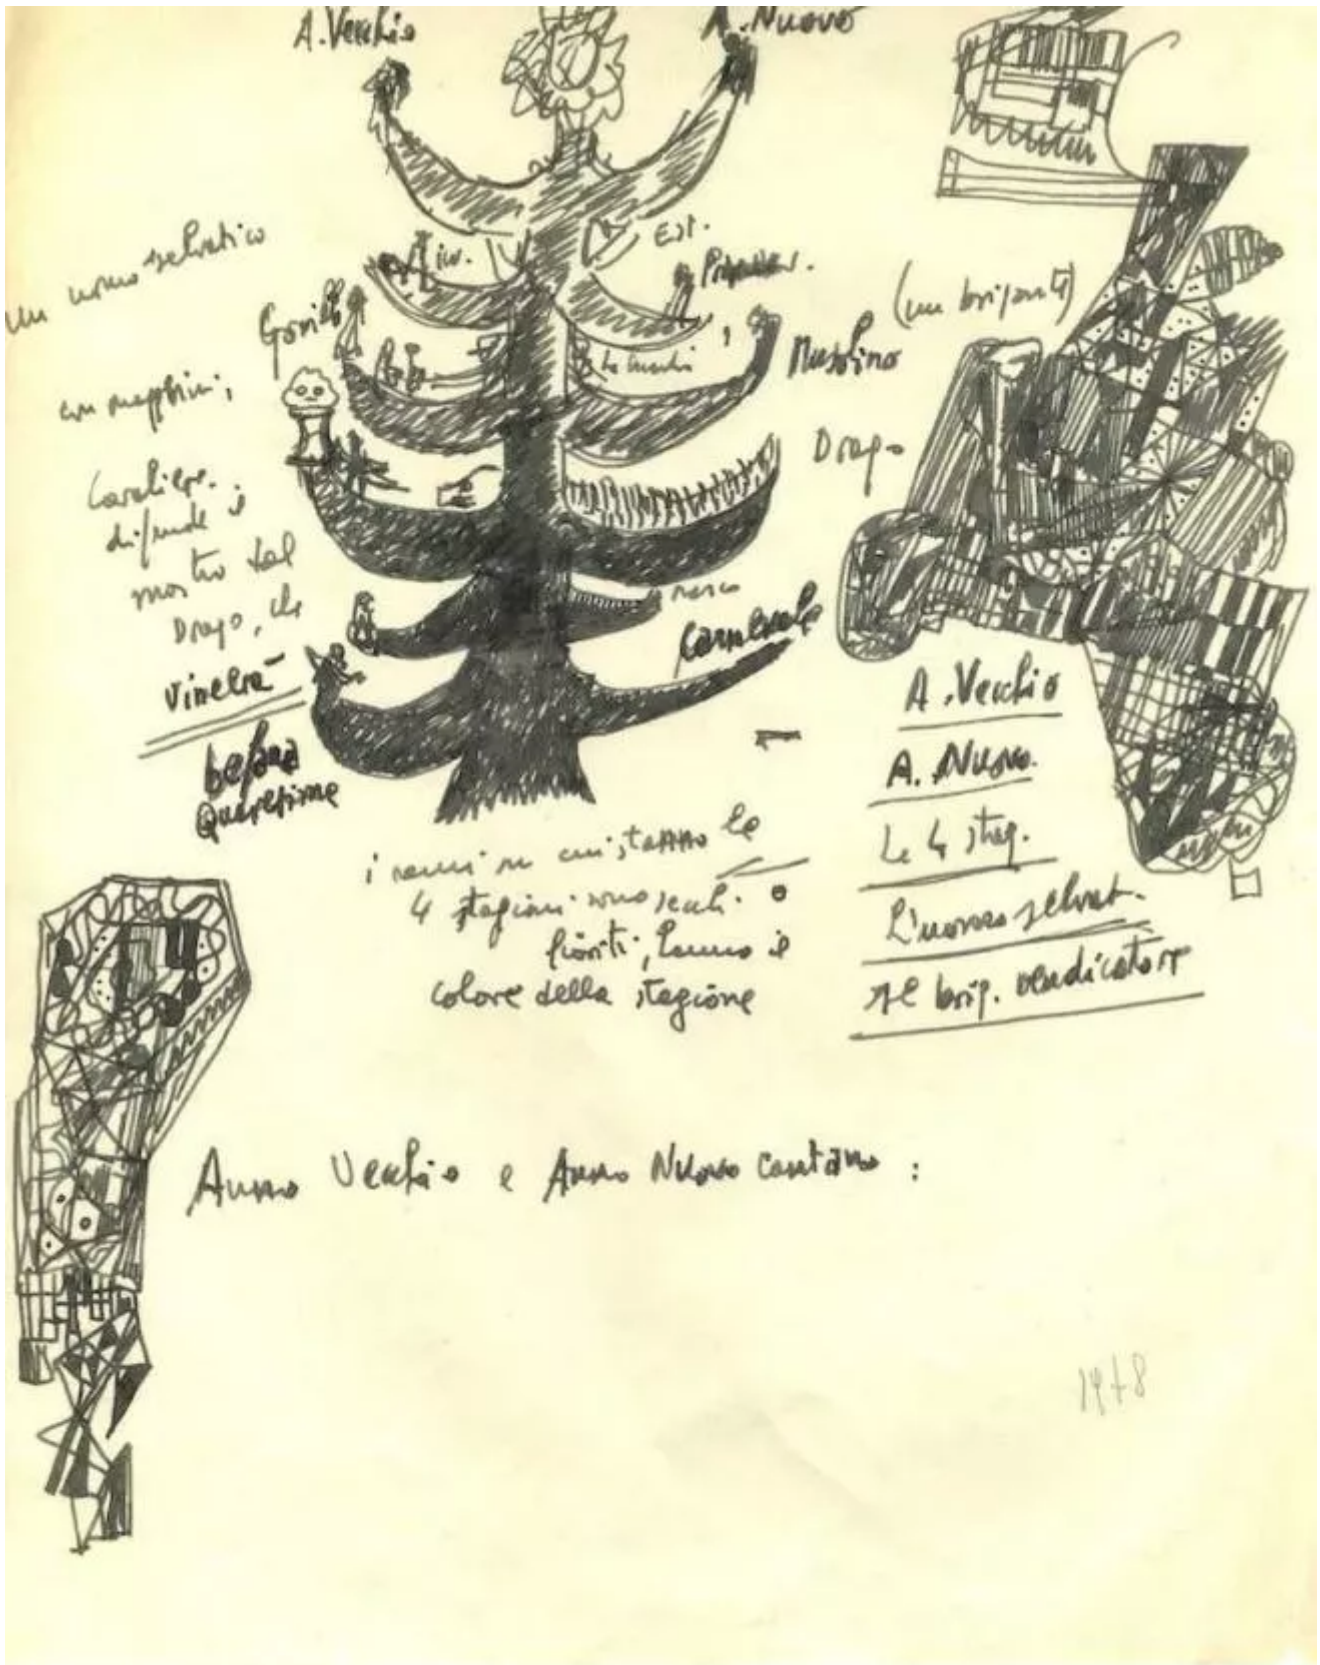 A. Vecchio
A. Nuovo
un uomo selvatico
Est.
inv.
(un brigante)
Musolino
Drago
Cavaliere.
difende il
mostro dal
Drago, che
vincerà
Carnevale
befana
Quaresima
i rami su cui stanno le
4 stagioni sono secchi o
fioriti, hanno il
colore della stagione
A. Vecchio
A. Nuovo.
Le 4 stag.
L'uomo selvat.
Il brig. vendicatore
Anno Vecchio e Anno Nuovo cantano :
1978